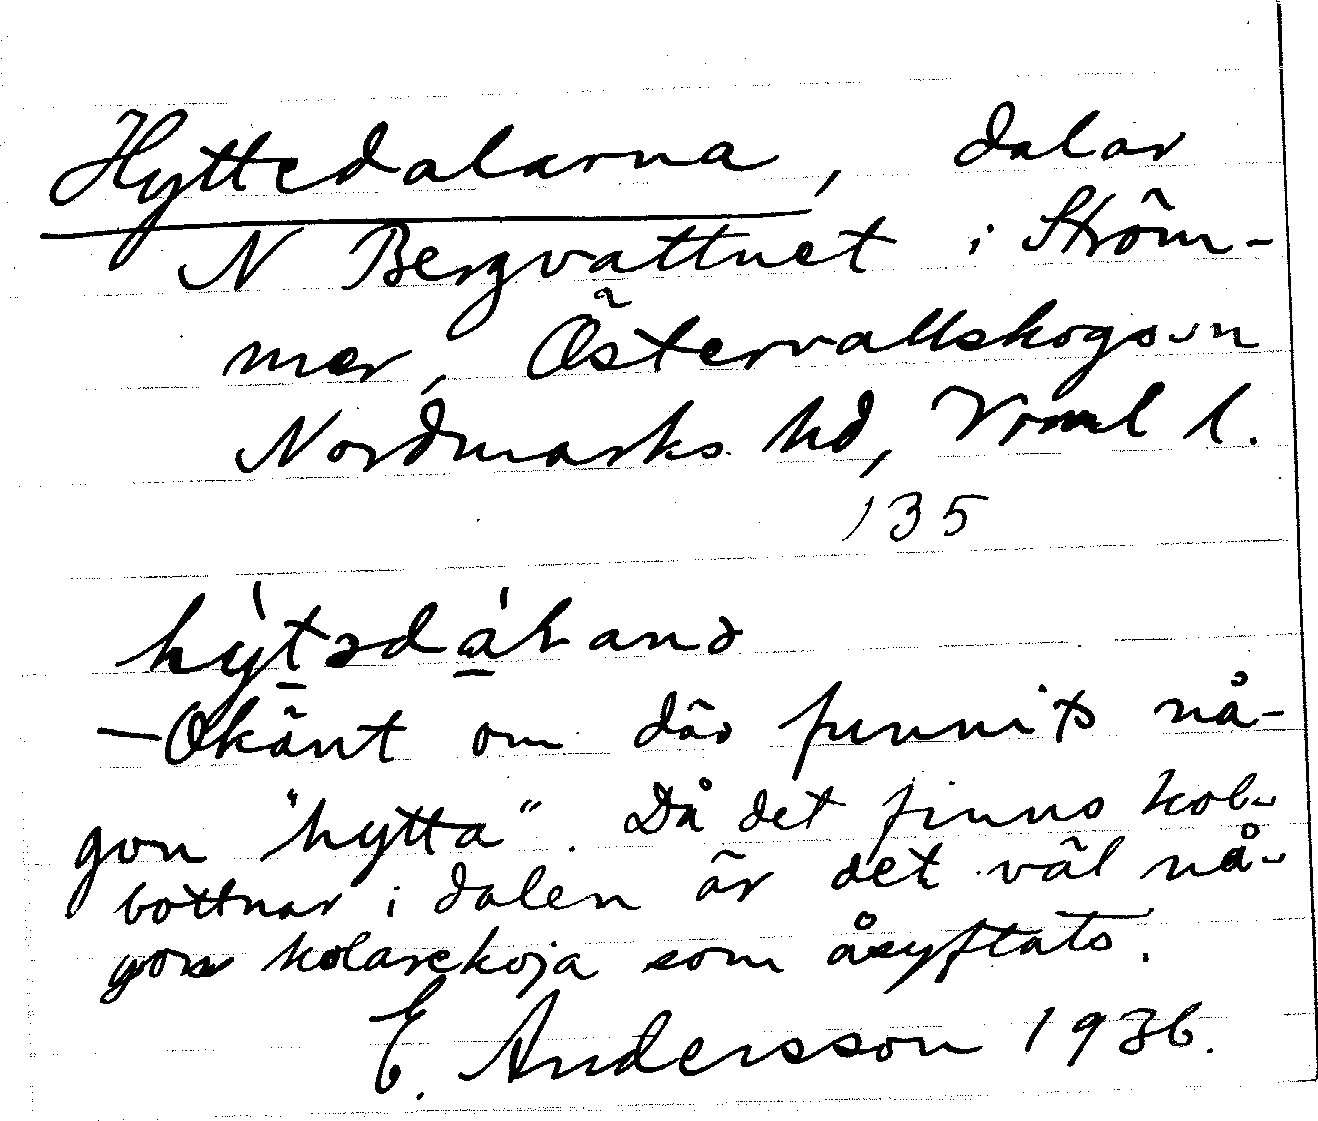 Hyttedalarna, dalar
N Bergvattnet i Ström-
mer, Östervallskogs sn
Nordmarks hd, Vrml l.
135
hỳtədálanə
—Okänt om där funnits nå-
gon "hytta". Då det finns kol-
bottnar i dalen är det väl nå-
gon kolarekoja som åsyftats.
E. Andersson 1936.